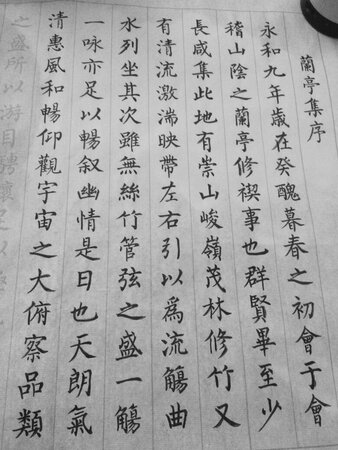 蘭亭集序
永和九年歲在癸醜暮春之初會于會
稽山陰之蘭亭修禊事也群賢畢至少
長咸集此地有崇山峻嶺茂林修竹又
有清流激湍映帶左右引以爲流觴曲
水列坐其次雖無絲竹管弦之盛一觴
一咏亦足以暢叙幽情是日也天朗氣
清惠風和暢仰觀宇宙之大俯察品類
之盛所以游目騁懷足以